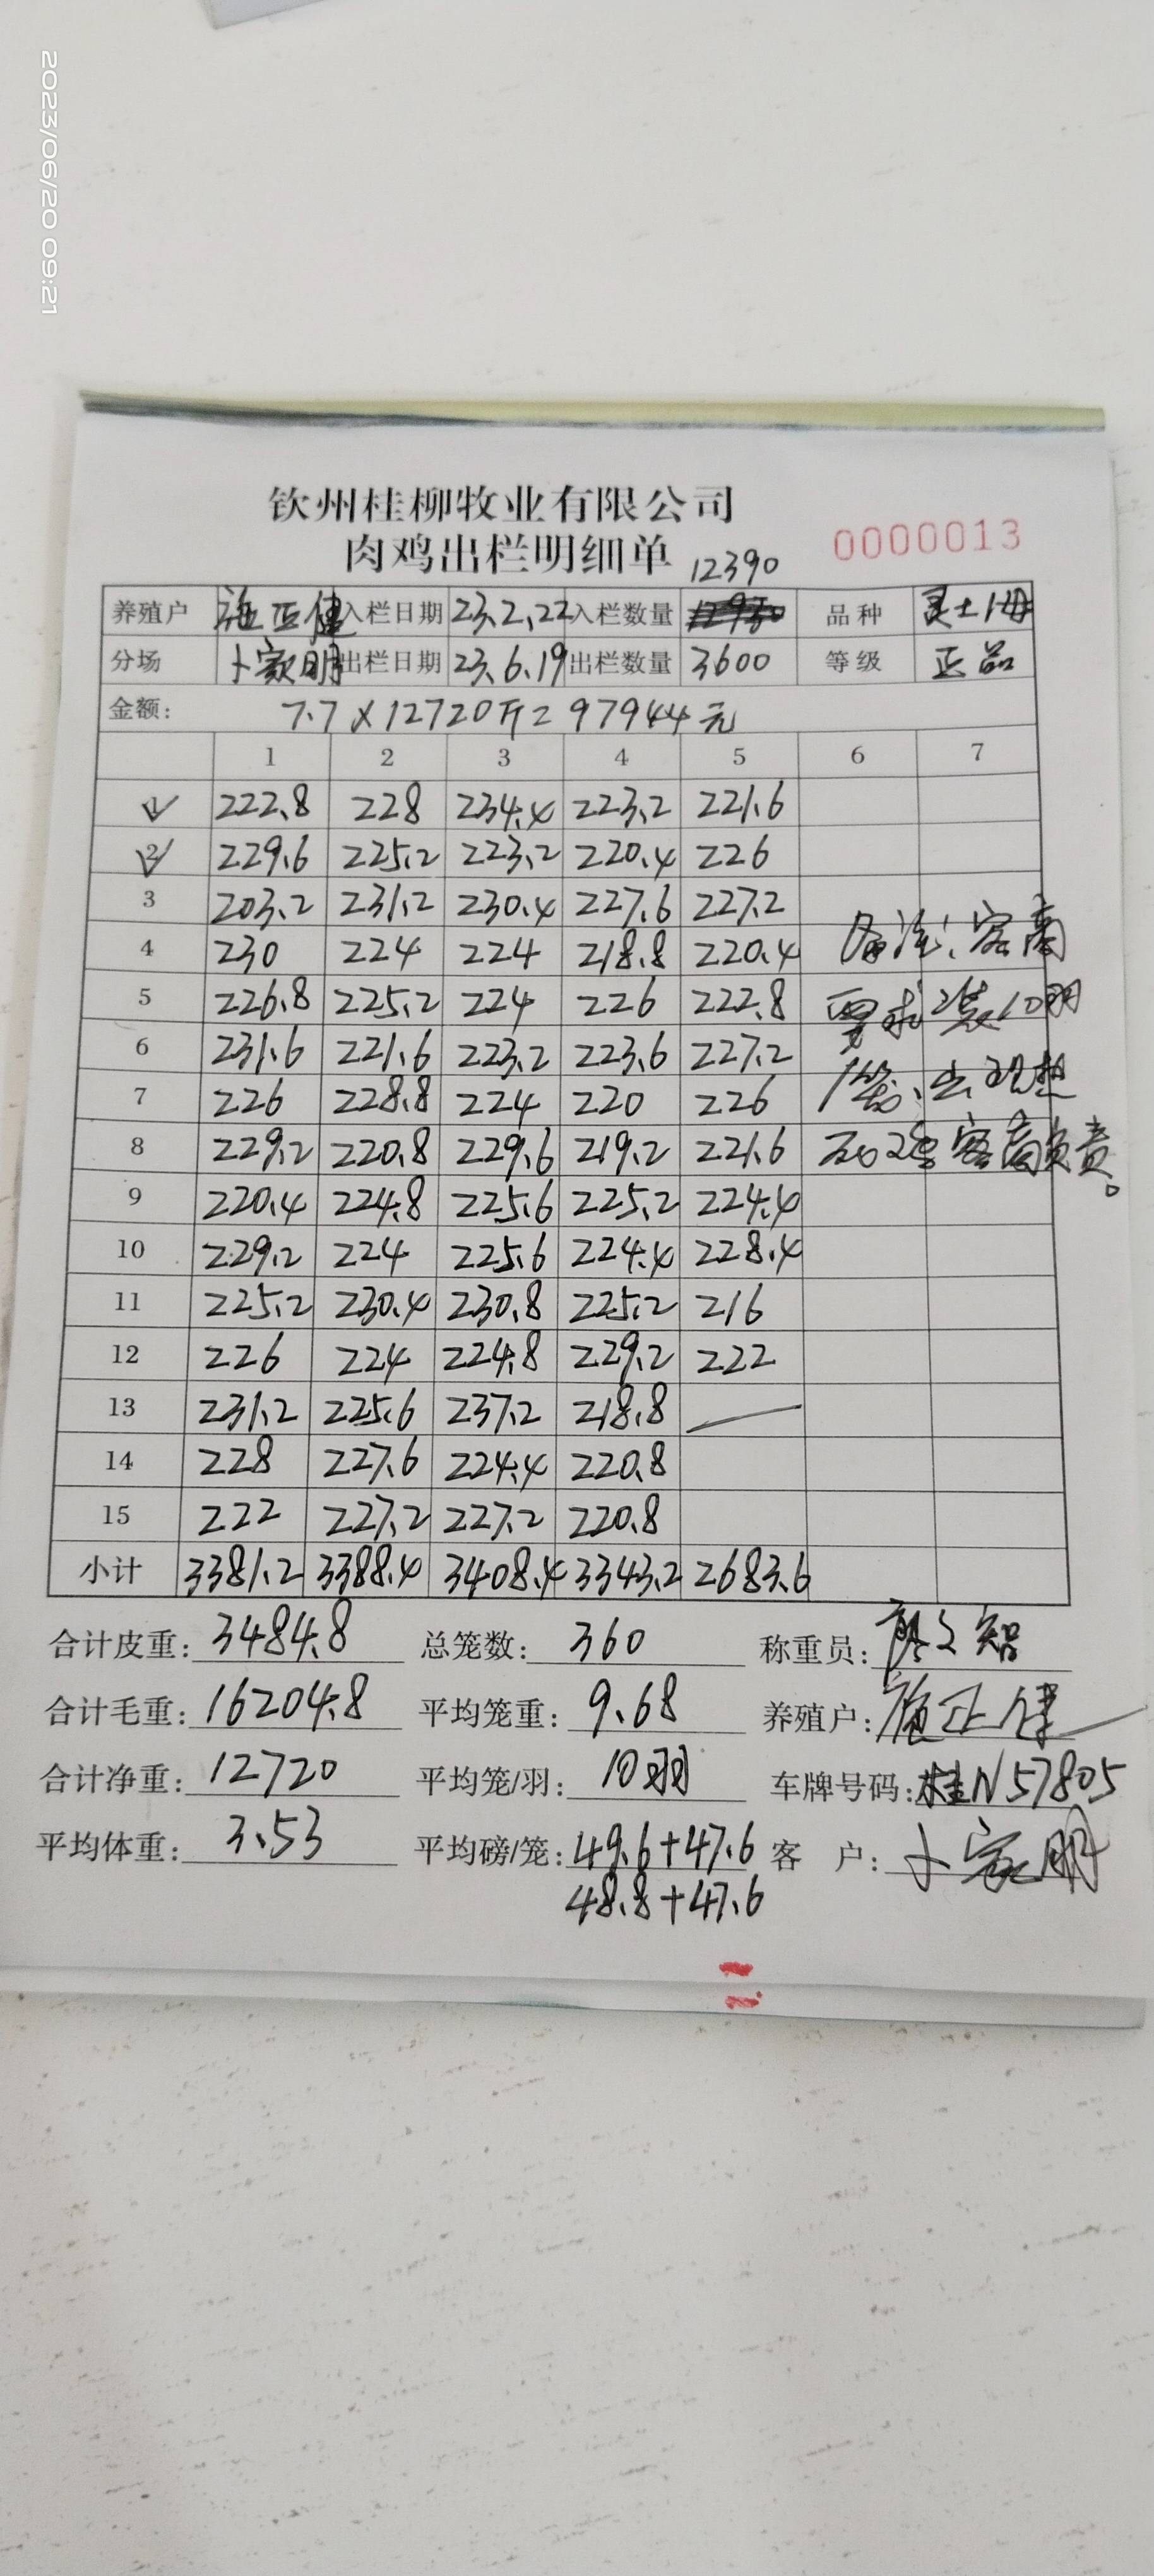 2023/06/20 09:21
钦州桂柳牧业有限公司
肉鸡出栏明细单
0000013
12390
养殖户 施正健 入栏日期 23.2.22 入栏数量 品种 灵土1母
分场 卜家明 出栏日期 23.6.19 出栏数量 3600 等级 正品
金额: 7.7×12720斤=97944元
1 2 3 4 5 6 7
1 222.8 228 234.4 223.2 221.6
2 229.6 225.2 223.2 220.4 226
3 203.2 231.2 230.4 227.6 227.2
4 230 224 224 218.8 220.4 备注:客商
5 226.8 225.2 224 226 222.8 要求装10羽
6 231.6 221.6 223.2 223.6 227.2
7 226 228.8 224 220 226 1笼、出现热
8 229.2 220.8 229.6 219.2 221.6 客商负责。
9 220.4 224.8 225.6 225.2 224.4
10 229.2 224 225.6 224.4 228.4
11 225.2 230.4 230.8 225.2 216
12 226 224 224.8 229.2 222
13 231.2 225.6 237.2 218.8
14 228 227.6 224.4 220.8
15 222 227.2 227.2 220.8
小计 3381.2 3388.4 3408.4 3343.2 2683.6
合计皮重: 3484.8 总笼数: 360 称重员: 智
合计毛重: 16204.8 平均笼重: 9.68 养殖户: 施正健
合计净重: 12720 平均笼/羽: 10羽 车牌号码: 桂N57805
平均体重: 3.53 平均磅/笼: 49.6+47.6 客 户: 卜家明
48.8+47.6